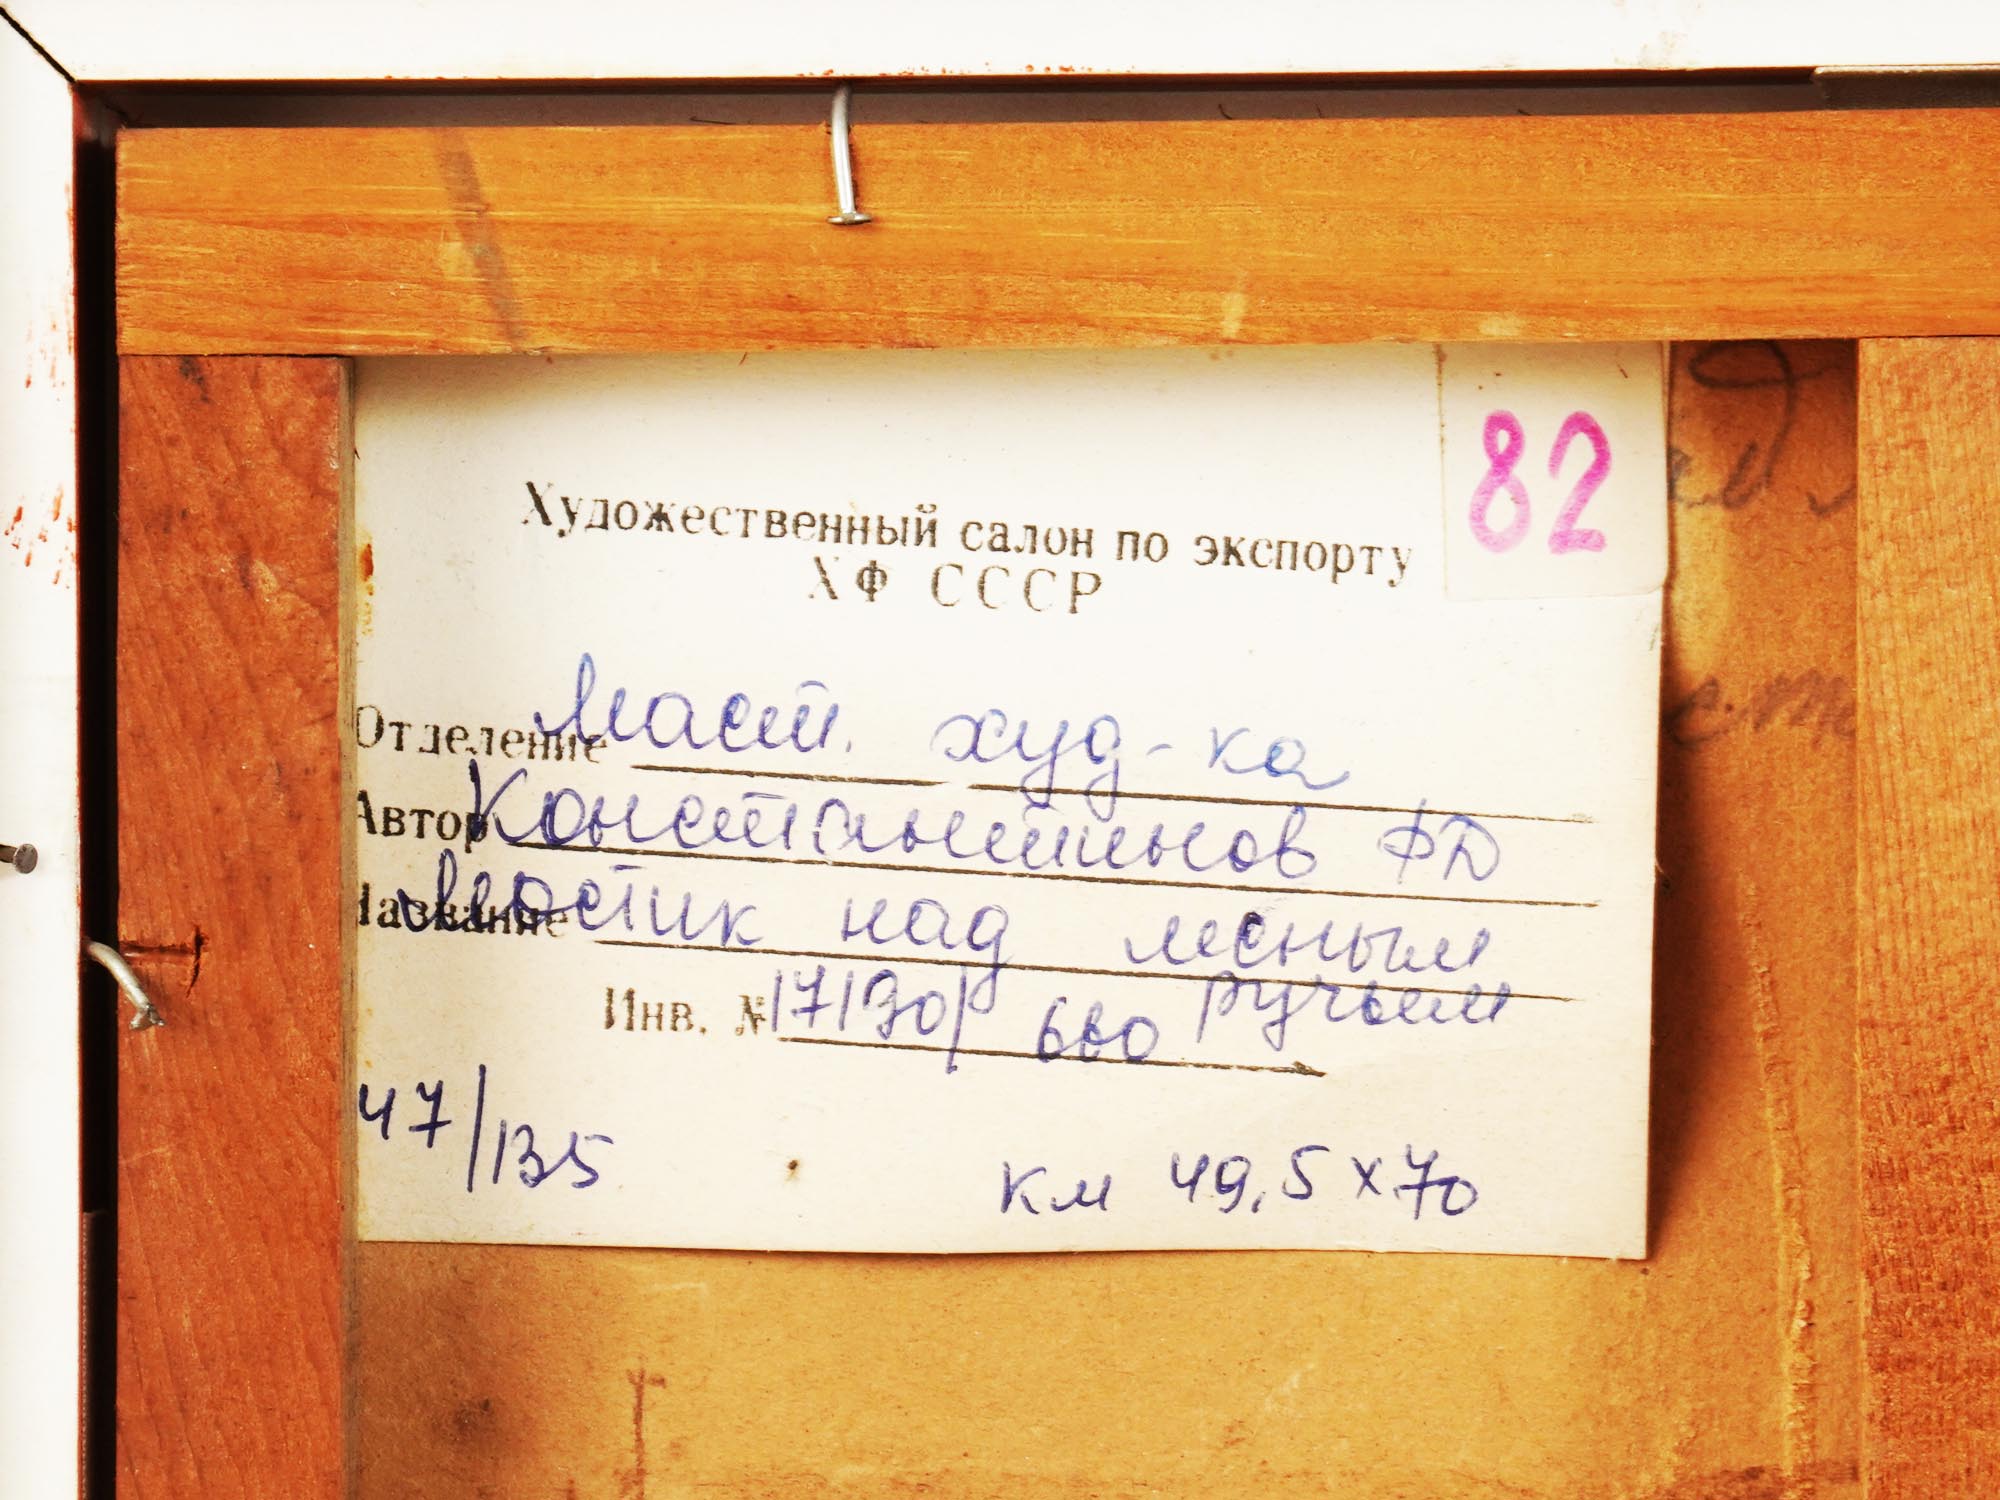 82
Художественный салон по экспорту
ХФ СССР
Отделение Маст. худ-ка
Автор Константинов ФД
Название Мостик над лесным
ручьем
Инв. № 17130/660
47/135
км 49,5 х 70